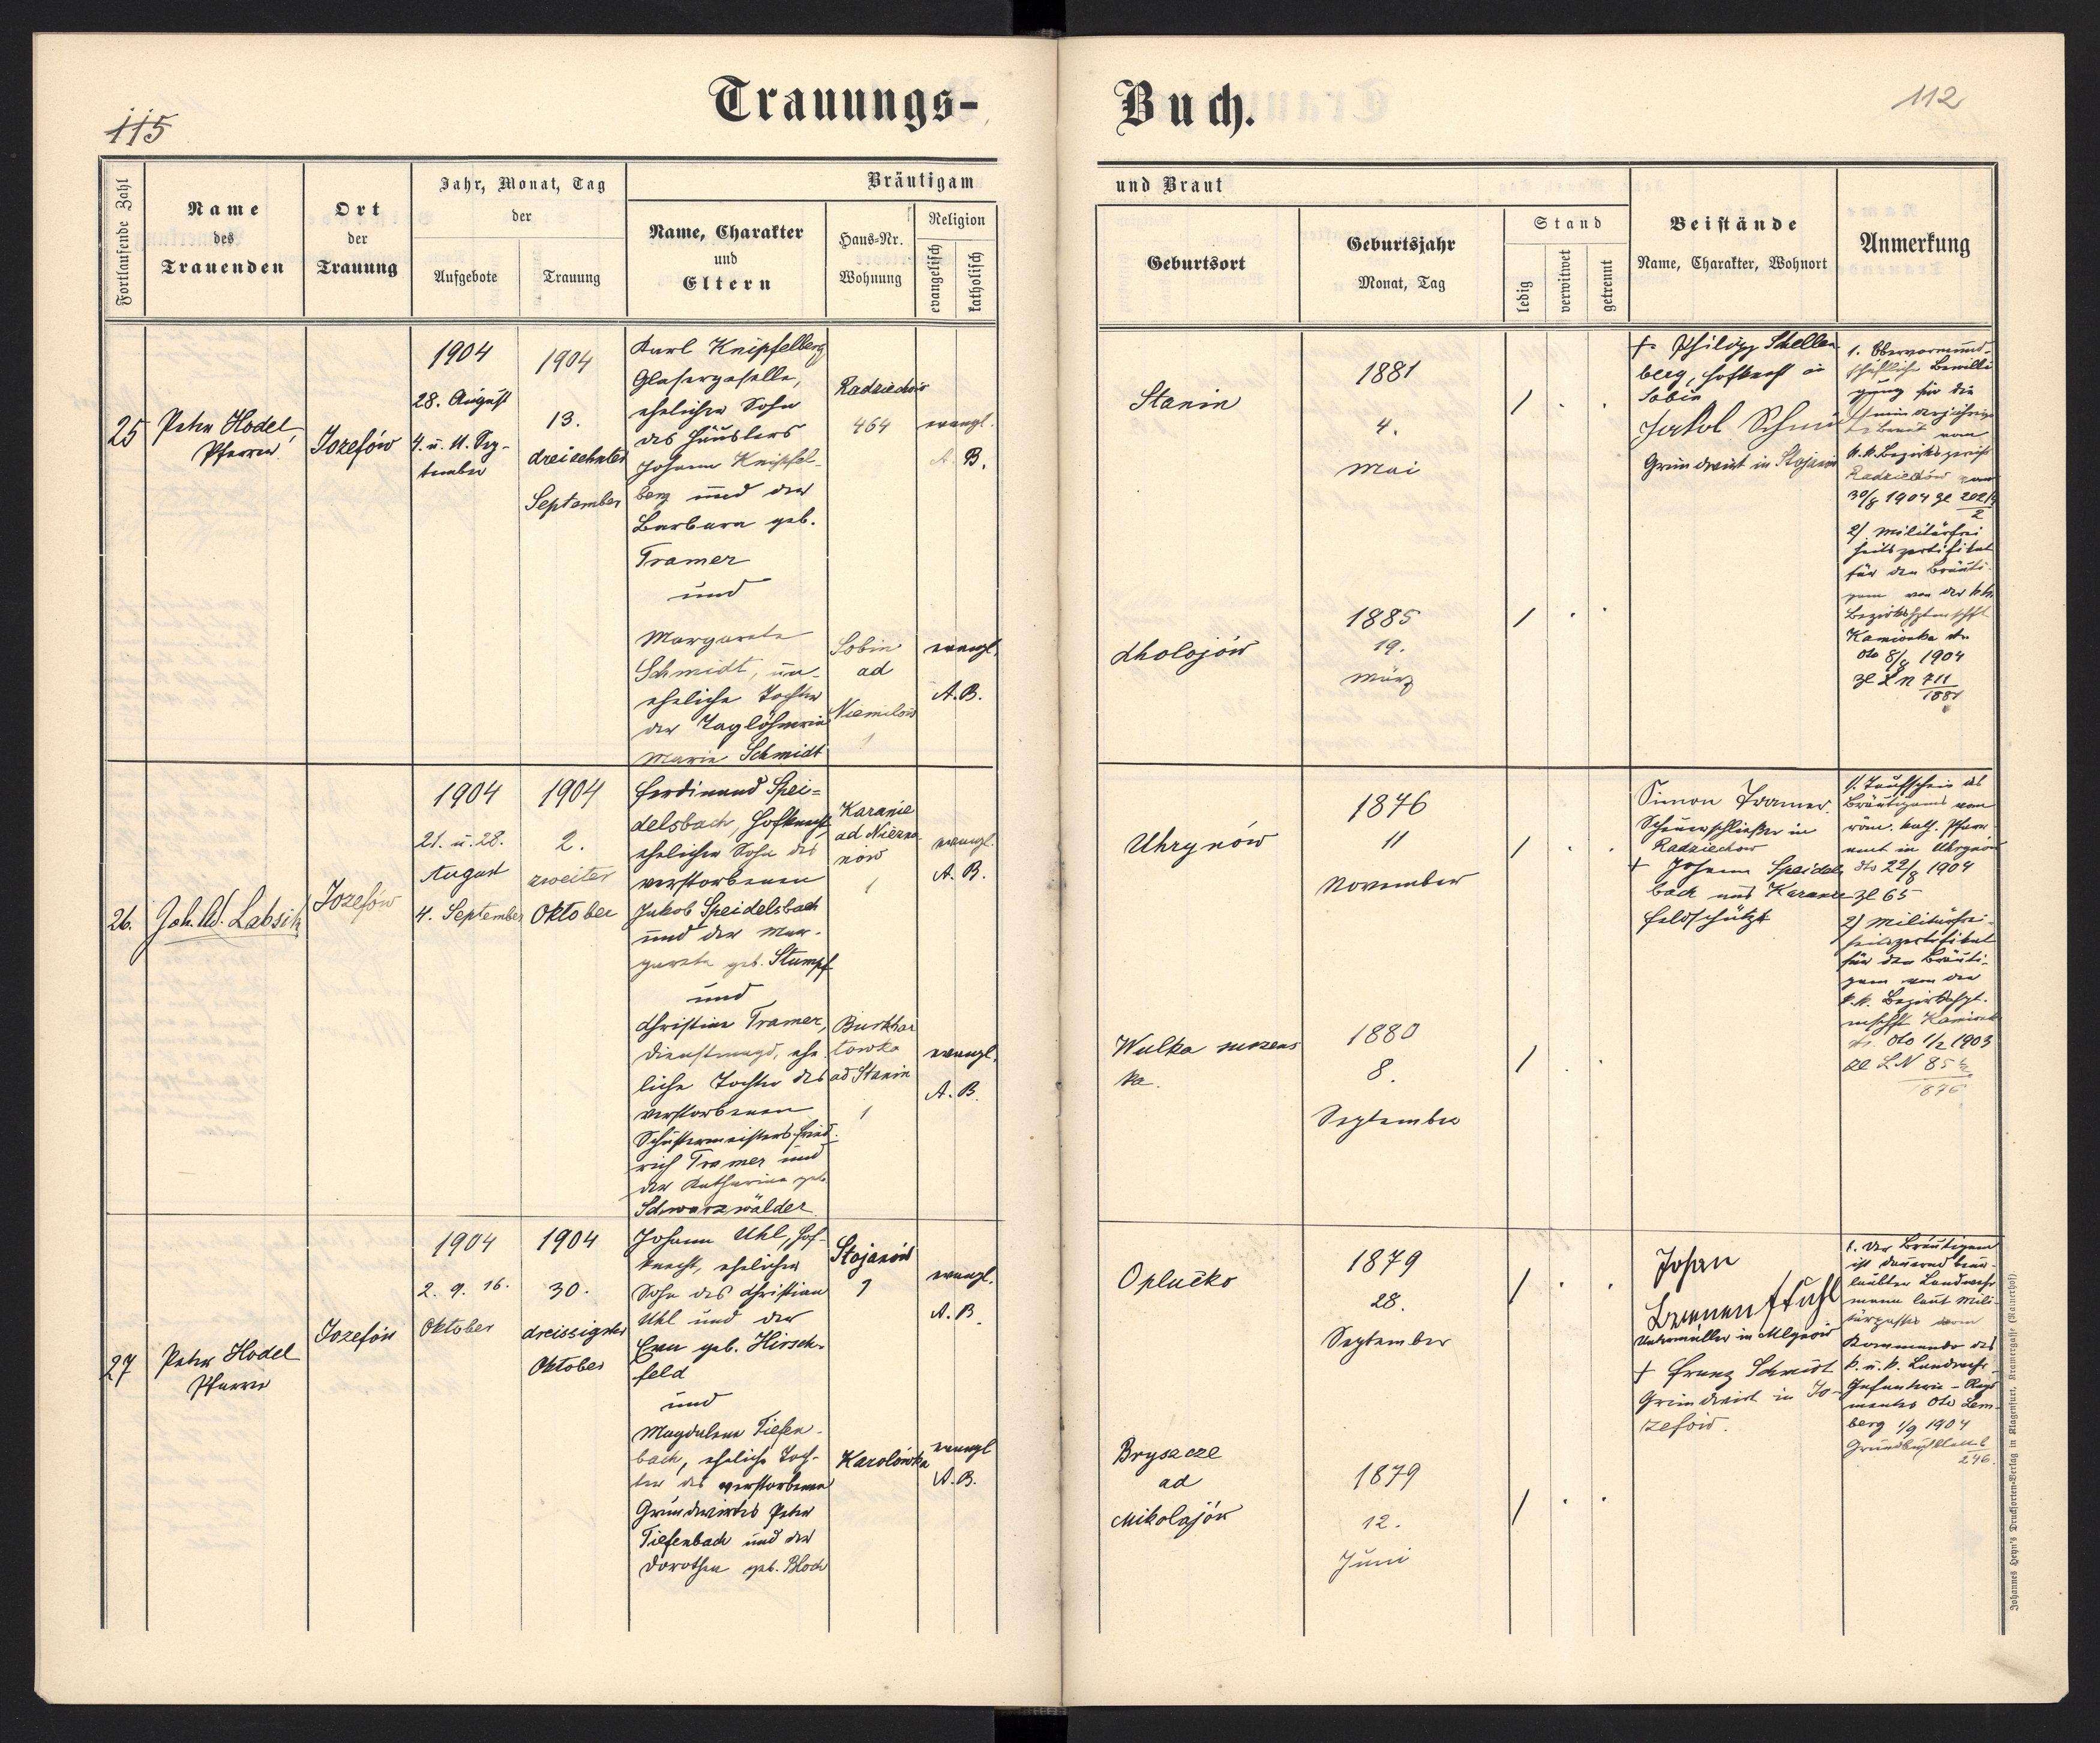 115
Trauungs-
Buch.
112
Fortlaufende Zahl
Name
des
Trauenden
Ort
der
Trauung
Jahr, Monat, Tag
der
Aufgebote
Trauung
Bräutigam
Name, Charakter
und
Eltern
Haus-Nr.
Wohnung
Religion
evangelisch
katholisch
und Braut
Geburtsort
Geburtsjahr
Monat, Tag
Stand
ledig
verwitwet
getrennt
Beistände
Name, Charakter, Wohnort
Anmerkung
25
Peter Hodel,
Pfarrer
Jozefów
1904
28. August
4. u. 11. Sep-
tember
1904
13.
dreizehnter
September
Karl Knipfelberg
Glasergeselle,
ehelicher Sohn
des Häuslers
Johann Knipfel-
berg und der
Barbara geb.
Tramer
und
Margarete
Schmidt, un-
eheliche Tochter
der Taglöhnerin
Marie Schmidt
Radziechów
464
evangl.
A. B.
Sobin
ad
Niemilów
1
evangl.
A. B.
Stanin
1881
4.
Mai
Cholojów
1885
19.
März
+ Philipp Schellen
berg, Hofknecht in
Sobin
Jakob
Grundwirt in Stojanów
1. Obervormund-
schaftliche Bewilli
gung für die
minderjährige
Braut vom
k. k. Bezirksgericht
Radziechów vom
30/8 1904
2) Militärfrei
heitszertifikat
für den Bräuti-
gam von der k.k.
Kamionka str.
dto 8/8 1904
zl L N 711
1881
26.
Joh. Labsik
Jozefów
1904
21. u. 28.
August
4. September
1904
2.
zweiter
Oktober
Ferdinand Spei=
delsbach, Hofknecht
ehelicher Sohn des
verstorbenen
Jakob Speidelsbach
und der Mar-
garete geb. Stumpf
und
Christine Tramer,
Dienstmagd, ehe
liche Tochter des
verstorbenen
Schustermeisters Fried-
rich Tramer und
der Katharina geb.
Schwarzwälder
Karanie
ad Niezna-
nów
1
evangl.
A. B.
Burkhar
towka
ad Stanin
1
evangl.
A. B.
Uhrynów
1876
11
November
Wulka
ka.
1880
8.
September
Simon Tramer
in
Radziechow
+ Johann Speidels
bach aus Karanie
Feldschütz
1. Taufschein des
Bräutigams vom
röm. kath. Pfarr-
amt in Uhrynów
dto 22/8 1904
zl 65
2) Militärfrei-
heitszertifikat
für den Bräuti-
gam von der
k. k. Bezirkshpt.
mschft Kamionka
str. dto 1/2 1903
zl L N
1876
27
Peter Hodel
Pfarrer
Jozefów
1904
2. 9. 16.
Oktober
1904
30.
dreissigster
Oktober
Johann Uhl, Hof-
knecht, ehelicher
Sohn des Christian
Uhl und der
Eva geb. Hirsch-
feld
und
Magdalena Tiefen-
bach, eheliche Toch-
ter des verstorbenen
Grundwirtes Peter
Tiefenbach und der
Dorothea geb. Bloch
Stojanów
evangl.
A. B.
Karolówka
evangl
A. B.
Oplučko
1879
28.
September
Bryszcze
ad
Mikolajów
1879
12.
Juni
Johan
in Mlynów
+ Franz Schmidt
Grundwirt in Jo-
zefów.
1. Der Bräutigam
ist dauernd beur-
laubter Landwehr
mann laut Mili-
tärpasses vom
Kommando des
k. u. k. Landwehr-
Infanterie-Regi
mentes dto Lem-
berg 1/9 1904
246.
Johannes Heyn's Drucksorten-Verlag in Klagenfurt, Kramergasse (Rainerhof).